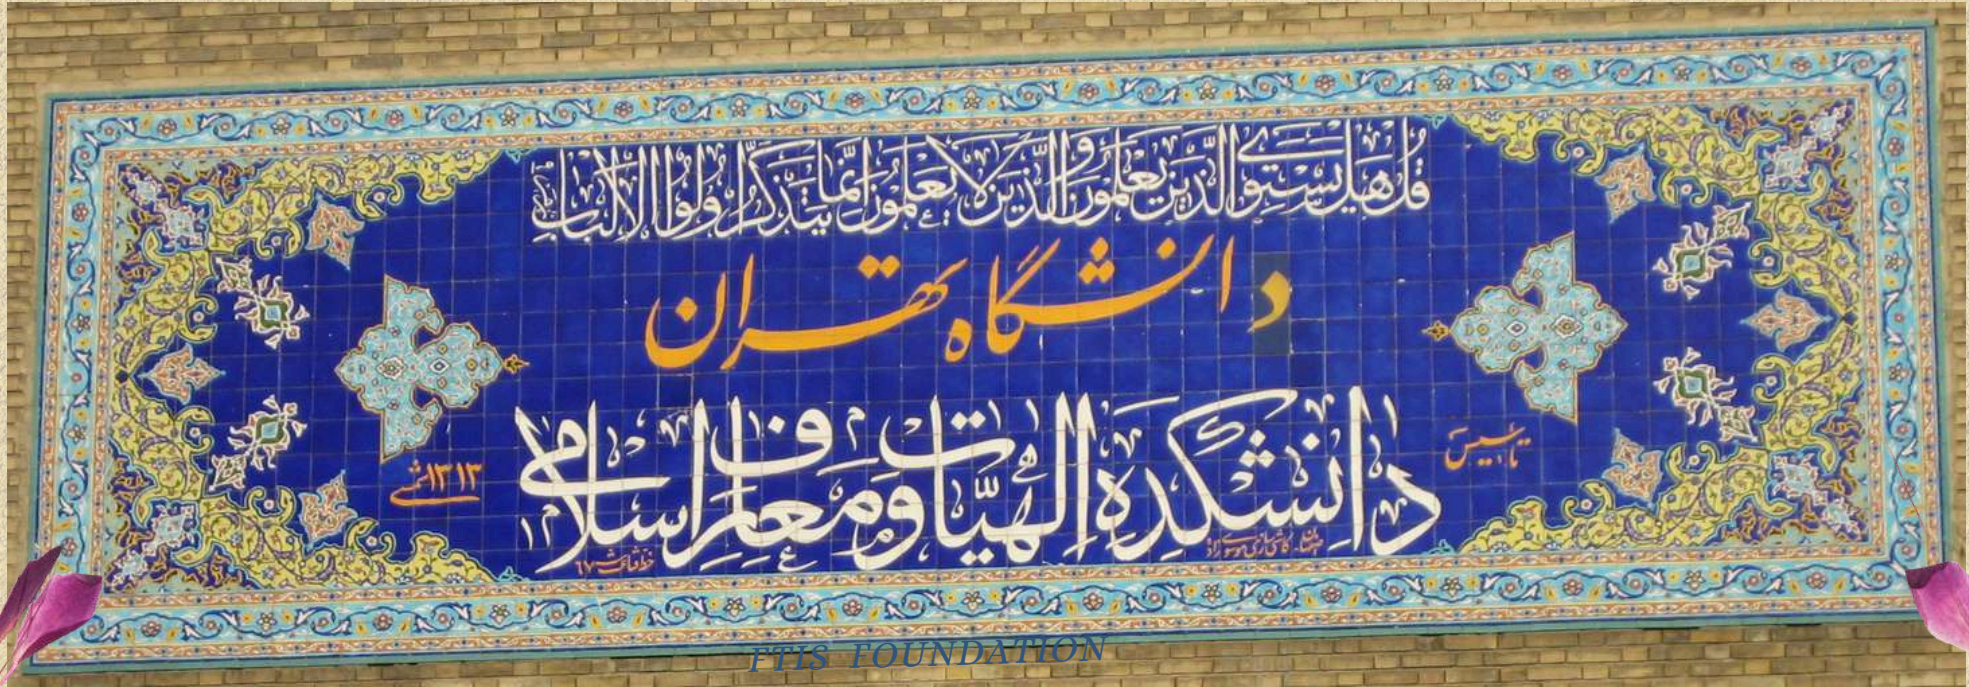 قل هل يستوي الذين يعلمون والذين لا يعلمون إنما يتذكر أولوا الألباب
دانشگاه تهران
دانشکده الهیات و معارف اسلامی
تأسیس
۱۳۱۳ شمسی
FTIS FOUNDATION